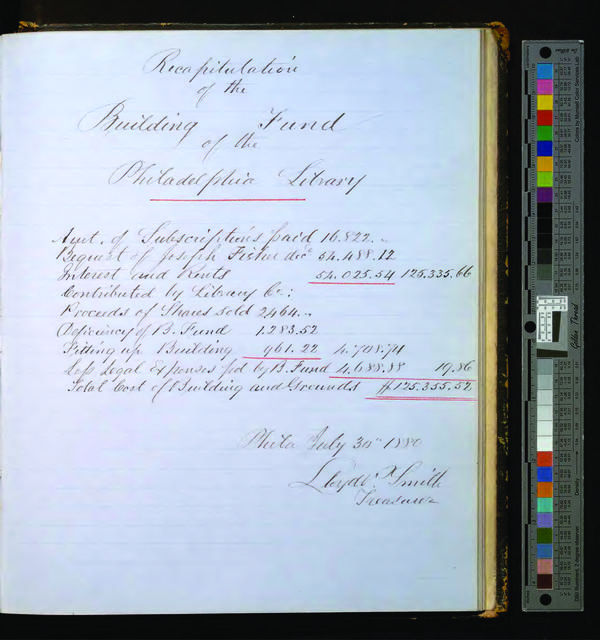 Recapitulation
of the
Building Fund
of the
Philadelphia Library
Amt. of Subscriptions paid 16.822. „
Bequest of Joseph Fisher decd 54.488.12
Interest and Rents 54.025.54 125.335.66
Contributed by Library Co:
Proceeds of Shares sold 2464. „
Deficiency of B. Fund 1.283.52
Fitting up Building 961.22 4.708.74
Less Legal Expenses pd by B. Fund 4.688.88 19.86
Total Cost of Building and Grounds $125.355.52
Phila July 30th 1880
Lloyd P. Smith
Treasurer
Golden Thread